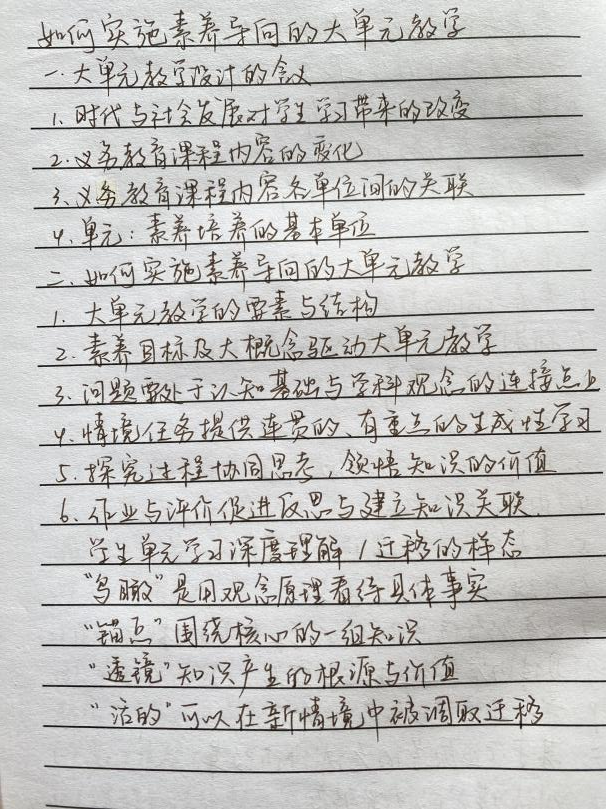 如何实施素养导向的大单元教学
一.大单元教学设计的含义
1.时代与社会发展对学生学习带来的改变
2.义务教育课程内容的变化
3.义务教育课程内容各单位间的关联
4.单元:素养培养的基本单位
二.如何实施素养导向的大单元教学
1.大单元教学的要素与结构
2.素养目标及大概念驱动大单元教学
3.问题要处于认知基础与学科观念的连接点上
4.情境任务提供连贯的、有重点的生成性学习
5.探究过程协同思考,领悟知识的价值
6.作业与评价促进反思与建立知识关联.
学生单元学习深度理解/迁移的样态
"鸟瞰"是用观念原理看待具体事实
"锚点"围绕核心的一组知识
"透镜"知识产生的根源与价值
"活的"可以在新情境中被调取迁移